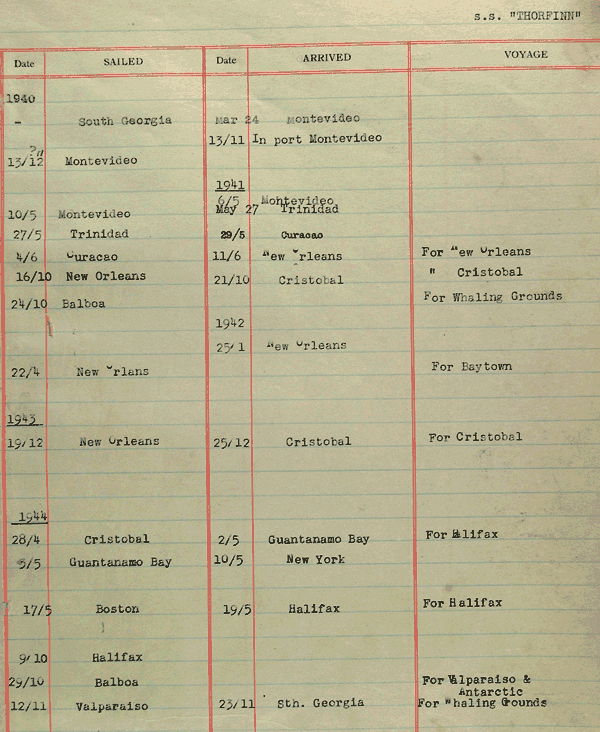 s.s. "THORFINN"
Date SAILED Date ARRIVED VOYAGE
1940
- South Georgia Mar 24 Montevideo
13/11 In port Montevideo
?"
13/12 Montevideo
1941
6/5 Montevideo
May 27 Trinidad
10/5 Montevideo
27/5 Trinidad 29/5 Curacao
4/6 Curacao 11/6 New Orleans For New Orleans
16/10 New Orleans " Cristobal
21/10 Cristobal
24/10 Balboa For Whaling Grounds
1942
25/1 New Orleans
22/4 New Orlans For Baytown
1943
19/12 New Orleans 25/12 Cristobal For Cristobal
1944
28/4 Cristobal 2/5 Guantanamo Bay For Halifax
5/5 Guantanamo Bay 10/5 New York
17/5 Boston 19/5 Halifax For Halifax
9/10 Halifax
29/10 Balboa For Valparaiso &
Antarctic
12/11 Valparaiso 23/11 Sth. Georgia For Whaling Grounds